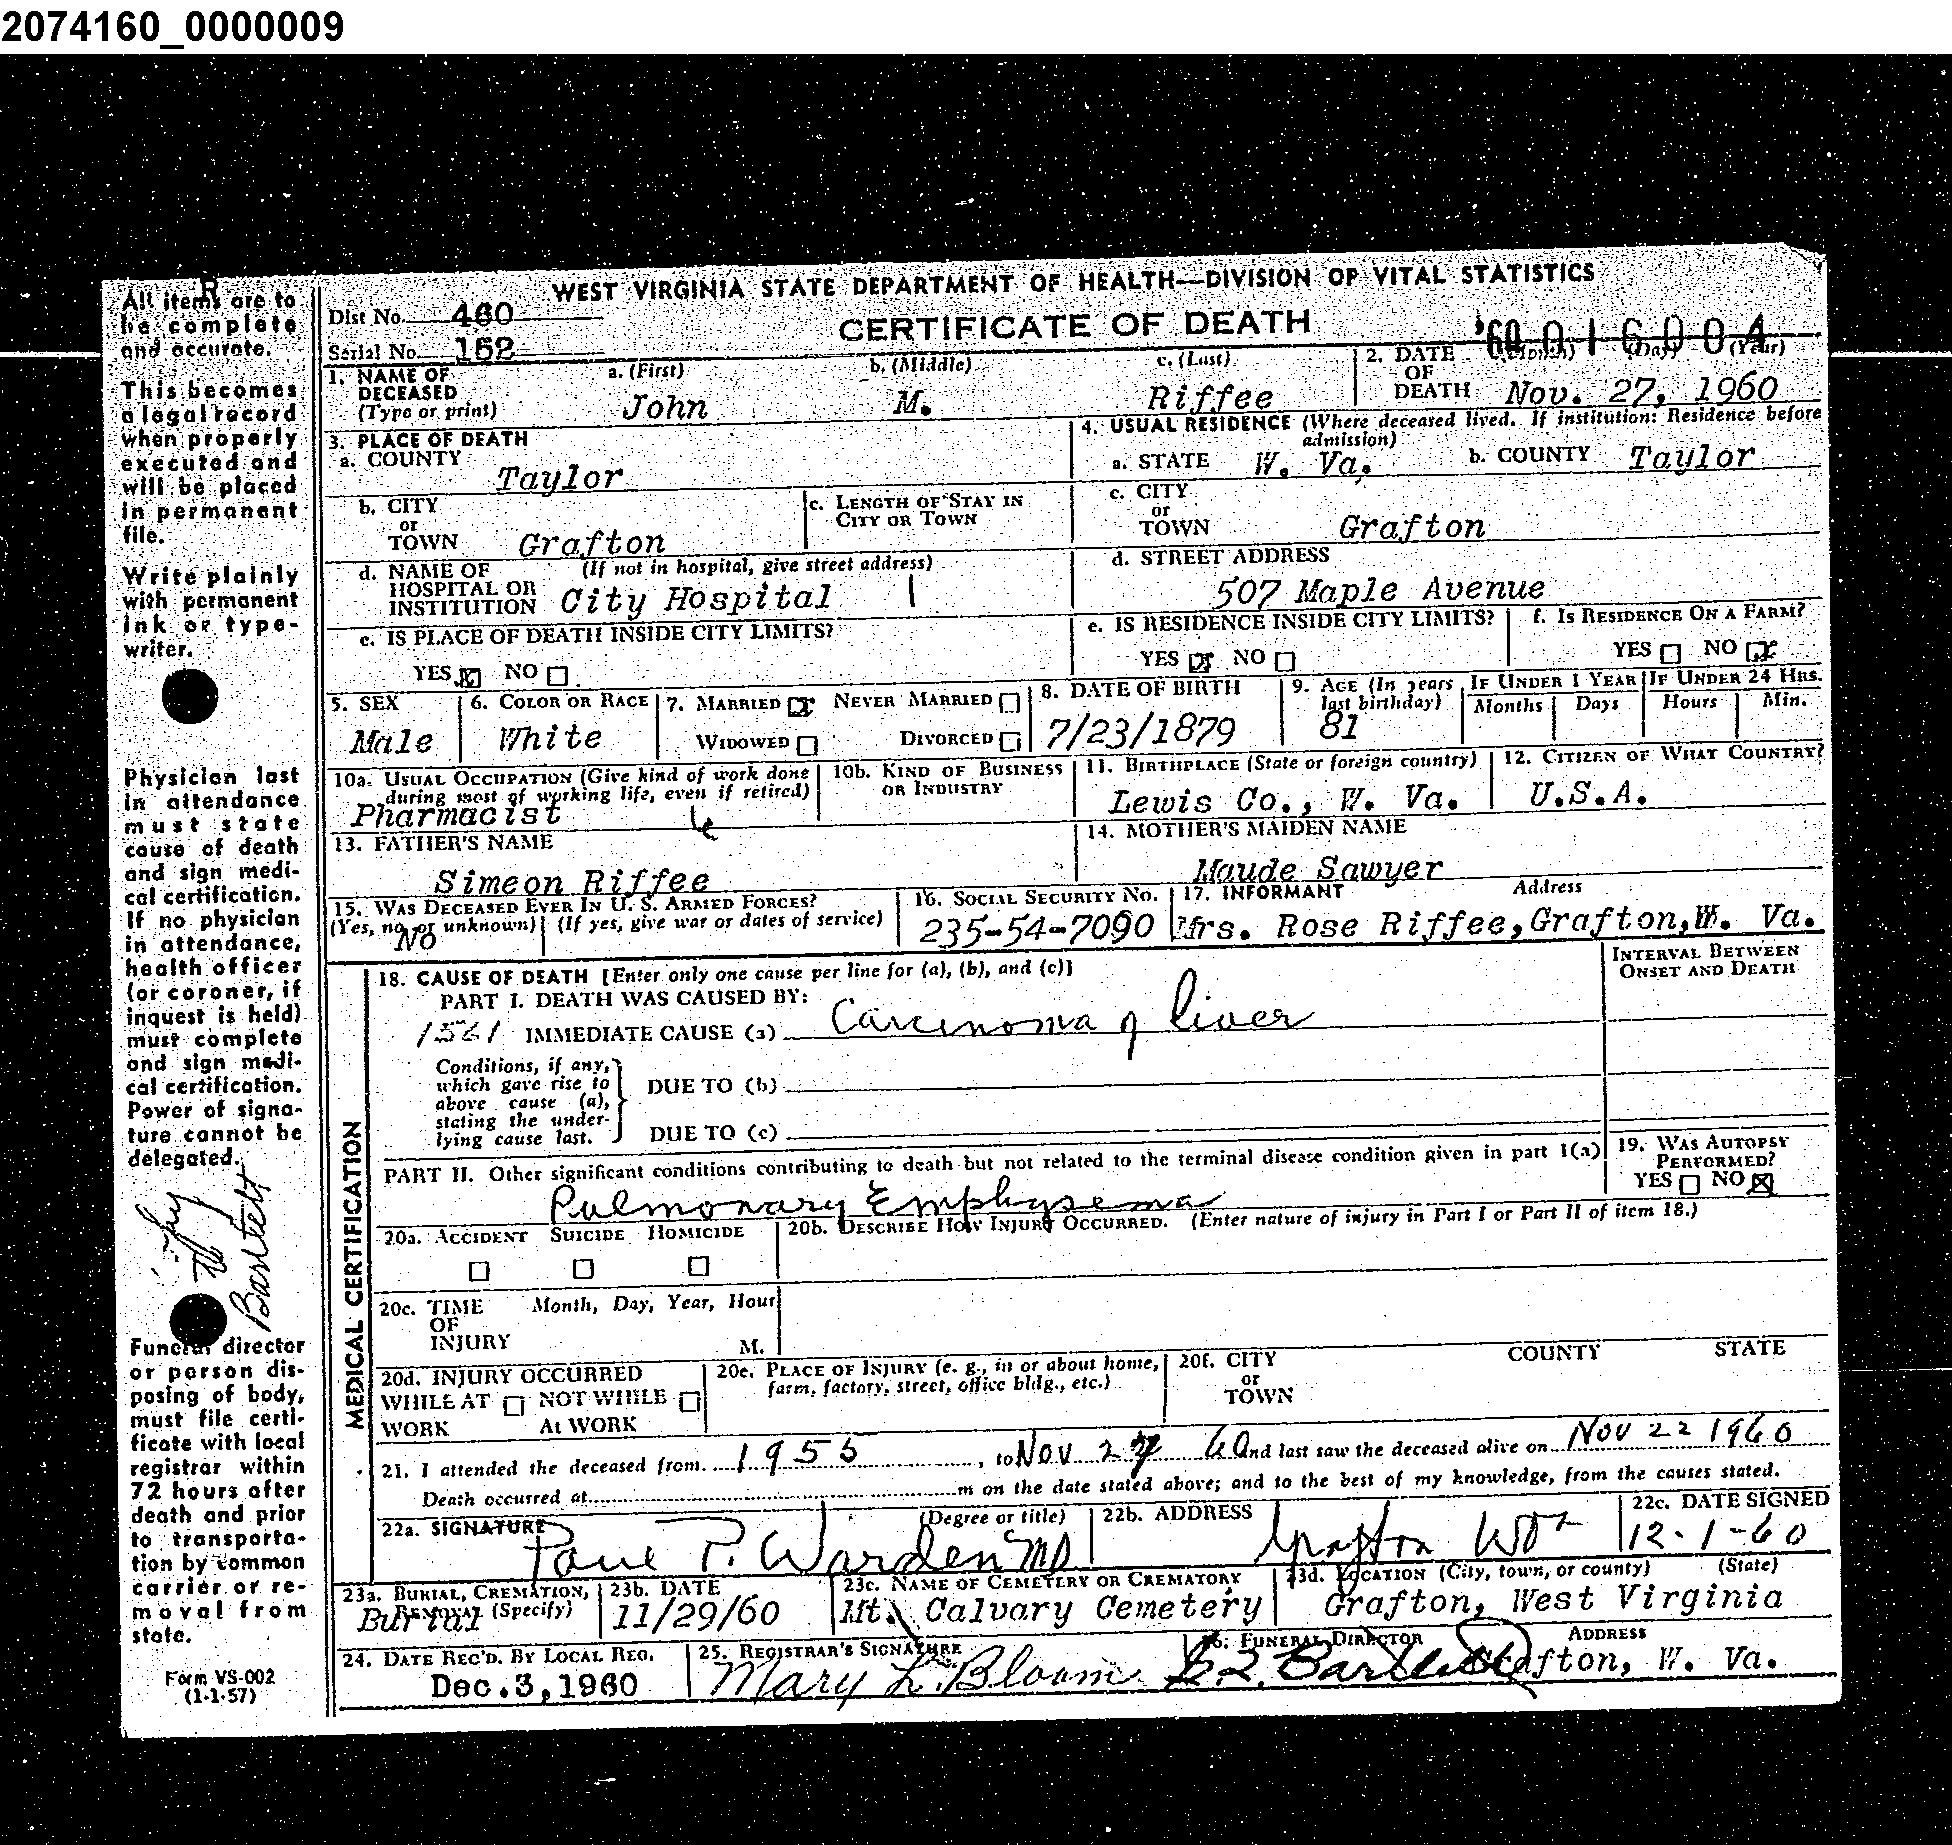 2074160_0000009
WEST VIRGINIA STATE DEPARTMENT OF HEALTH—DIVISION OF VITAL STATISTICS
CERTIFICATE OF DEATH
Dist No. 460
Serial No. 152
'60 016004
1. NAME OF DECEASED (Type or print) a. (First) b. (Middle) c. (Last)
John M. Riffee
2. DATE OF DEATH (Month) (Day) (Year)
Nov. 27, 1960
3. PLACE OF DEATH
a. COUNTY Taylor
b. CITY or TOWN Grafton
c. LENGTH OF STAY IN CITY OR TOWN
d. NAME OF HOSPITAL OR INSTITUTION (If not in hospital, give street address)
City Hospital
e. IS PLACE OF DEATH INSIDE CITY LIMITS?
YES NO
4. USUAL RESIDENCE (Where deceased lived. If institution: Residence before admission)
a. STATE W. Va. b. COUNTY Taylor
c. CITY or TOWN Grafton
d. STREET ADDRESS
507 Maple Avenue
e. IS RESIDENCE INSIDE CITY LIMITS? f. IS RESIDENCE ON A FARM?
YES NO YES NO
5. SEX Male
6. COLOR OR RACE White
7. MARRIED NEVER MARRIED
WIDOWED DIVORCED
8. DATE OF BIRTH 7/23/1879
9. AGE (In years last birthday) 81
IF UNDER 1 YEAR Months Days
IF UNDER 24 HRS. Hours Min.
10a. USUAL OCCUPATION (Give kind of work done during most of working life, even if retired)
Pharmacist
10b. KIND OF BUSINESS OR INDUSTRY
11. BIRTHPLACE (State or foreign country)
Lewis Co., W. Va.
12. CITIZEN OF WHAT COUNTRY?
U.S.A.
13. FATHER'S NAME
Simeon Riffee
14. MOTHER'S MAIDEN NAME
Maude Sawyer
15. WAS DECEASED EVER IN U. S. ARMED FORCES?
(Yes, no, or unknown) (If yes, give war or dates of service)
No
16. SOCIAL SECURITY NO.
235-54-7090
17. INFORMANT Address
Mrs. Rose Riffee, Grafton, W. Va.
MEDICAL CERTIFICATION
18. CAUSE OF DEATH [Enter only one cause per line for (a), (b), and (c)]
INTERVAL BETWEEN ONSET AND DEATH
PART I. DEATH WAS CAUSED BY:
1561 IMMEDIATE CAUSE (a) Carcinoma of liver
Conditions, if any, which gave rise to above cause (a), stating the underlying cause last.
DUE TO (b)
DUE TO (c)
PART II. Other significant conditions contributing to death but not related to the terminal disease condition given in part I(a)
Pulmonary Emphysema
19. WAS AUTOPSY PERFORMED?
YES NO
20a. ACCIDENT SUICIDE HOMICIDE
20b. DESCRIBE HOW INJURY OCCURRED. (Enter nature of injury in Part I or Part II of item 18.)
20c. TIME OF INJURY Month, Day, Year, Hour
M.
20d. INJURY OCCURRED
WHILE AT WORK NOT WHILE At WORK
20e. PLACE OF INJURY (e. g., in or about home, farm, factory, street, office bldg., etc.)
20f. CITY or TOWN COUNTY STATE
21. I attended the deceased from 1955, to Nov 27 60 and last saw the deceased alive on Nov 22 1960
Death occurred at m on the date stated above; and to the best of my knowledge, from the causes stated.
22a. SIGNATURE (Degree or title)
Paul P. Warden MD
22b. ADDRESS
Grafton W Va
22c. DATE SIGNED
12-1-60
23a. BURIAL, CREMATION, REMOVAL (Specify)
Burial
23b. DATE
11/29/60
23c. NAME OF CEMETERY OR CREMATORY
Mt. Calvary Cemetery
23d. LOCATION (City, town, or county) (State)
Grafton, West Virginia
24. DATE REC'D. BY LOCAL REG.
Dec. 3, 1960
25. REGISTRAR'S SIGNATURE
Mary L. Bloom
26. FUNERAL DIRECTOR ADDRESS
Bartlett Grafton, W. Va.
R
All items are to
be complete
and accurate.
This becomes
a legal record
when properly
executed and
will be placed
in permanent
file.
Write plainly
with permanent
ink or type-
writer.
Physician last
in attendance
must state
cause of death
and sign medi-
cal certification.
If no physician
in attendance,
health officer
(or coroner, if
inquest is held)
must complete
and sign medi-
cal certification.
Power of signa-
ture cannot be
delegated.
Bartlett
Funeral director
or person dis-
posing of body,
must file certi-
ficate with local
registrar within
72 hours after
death and prior
to transporta-
tion by common
carrier or re-
moval from
state.
Form VS-002
(1-1-57)